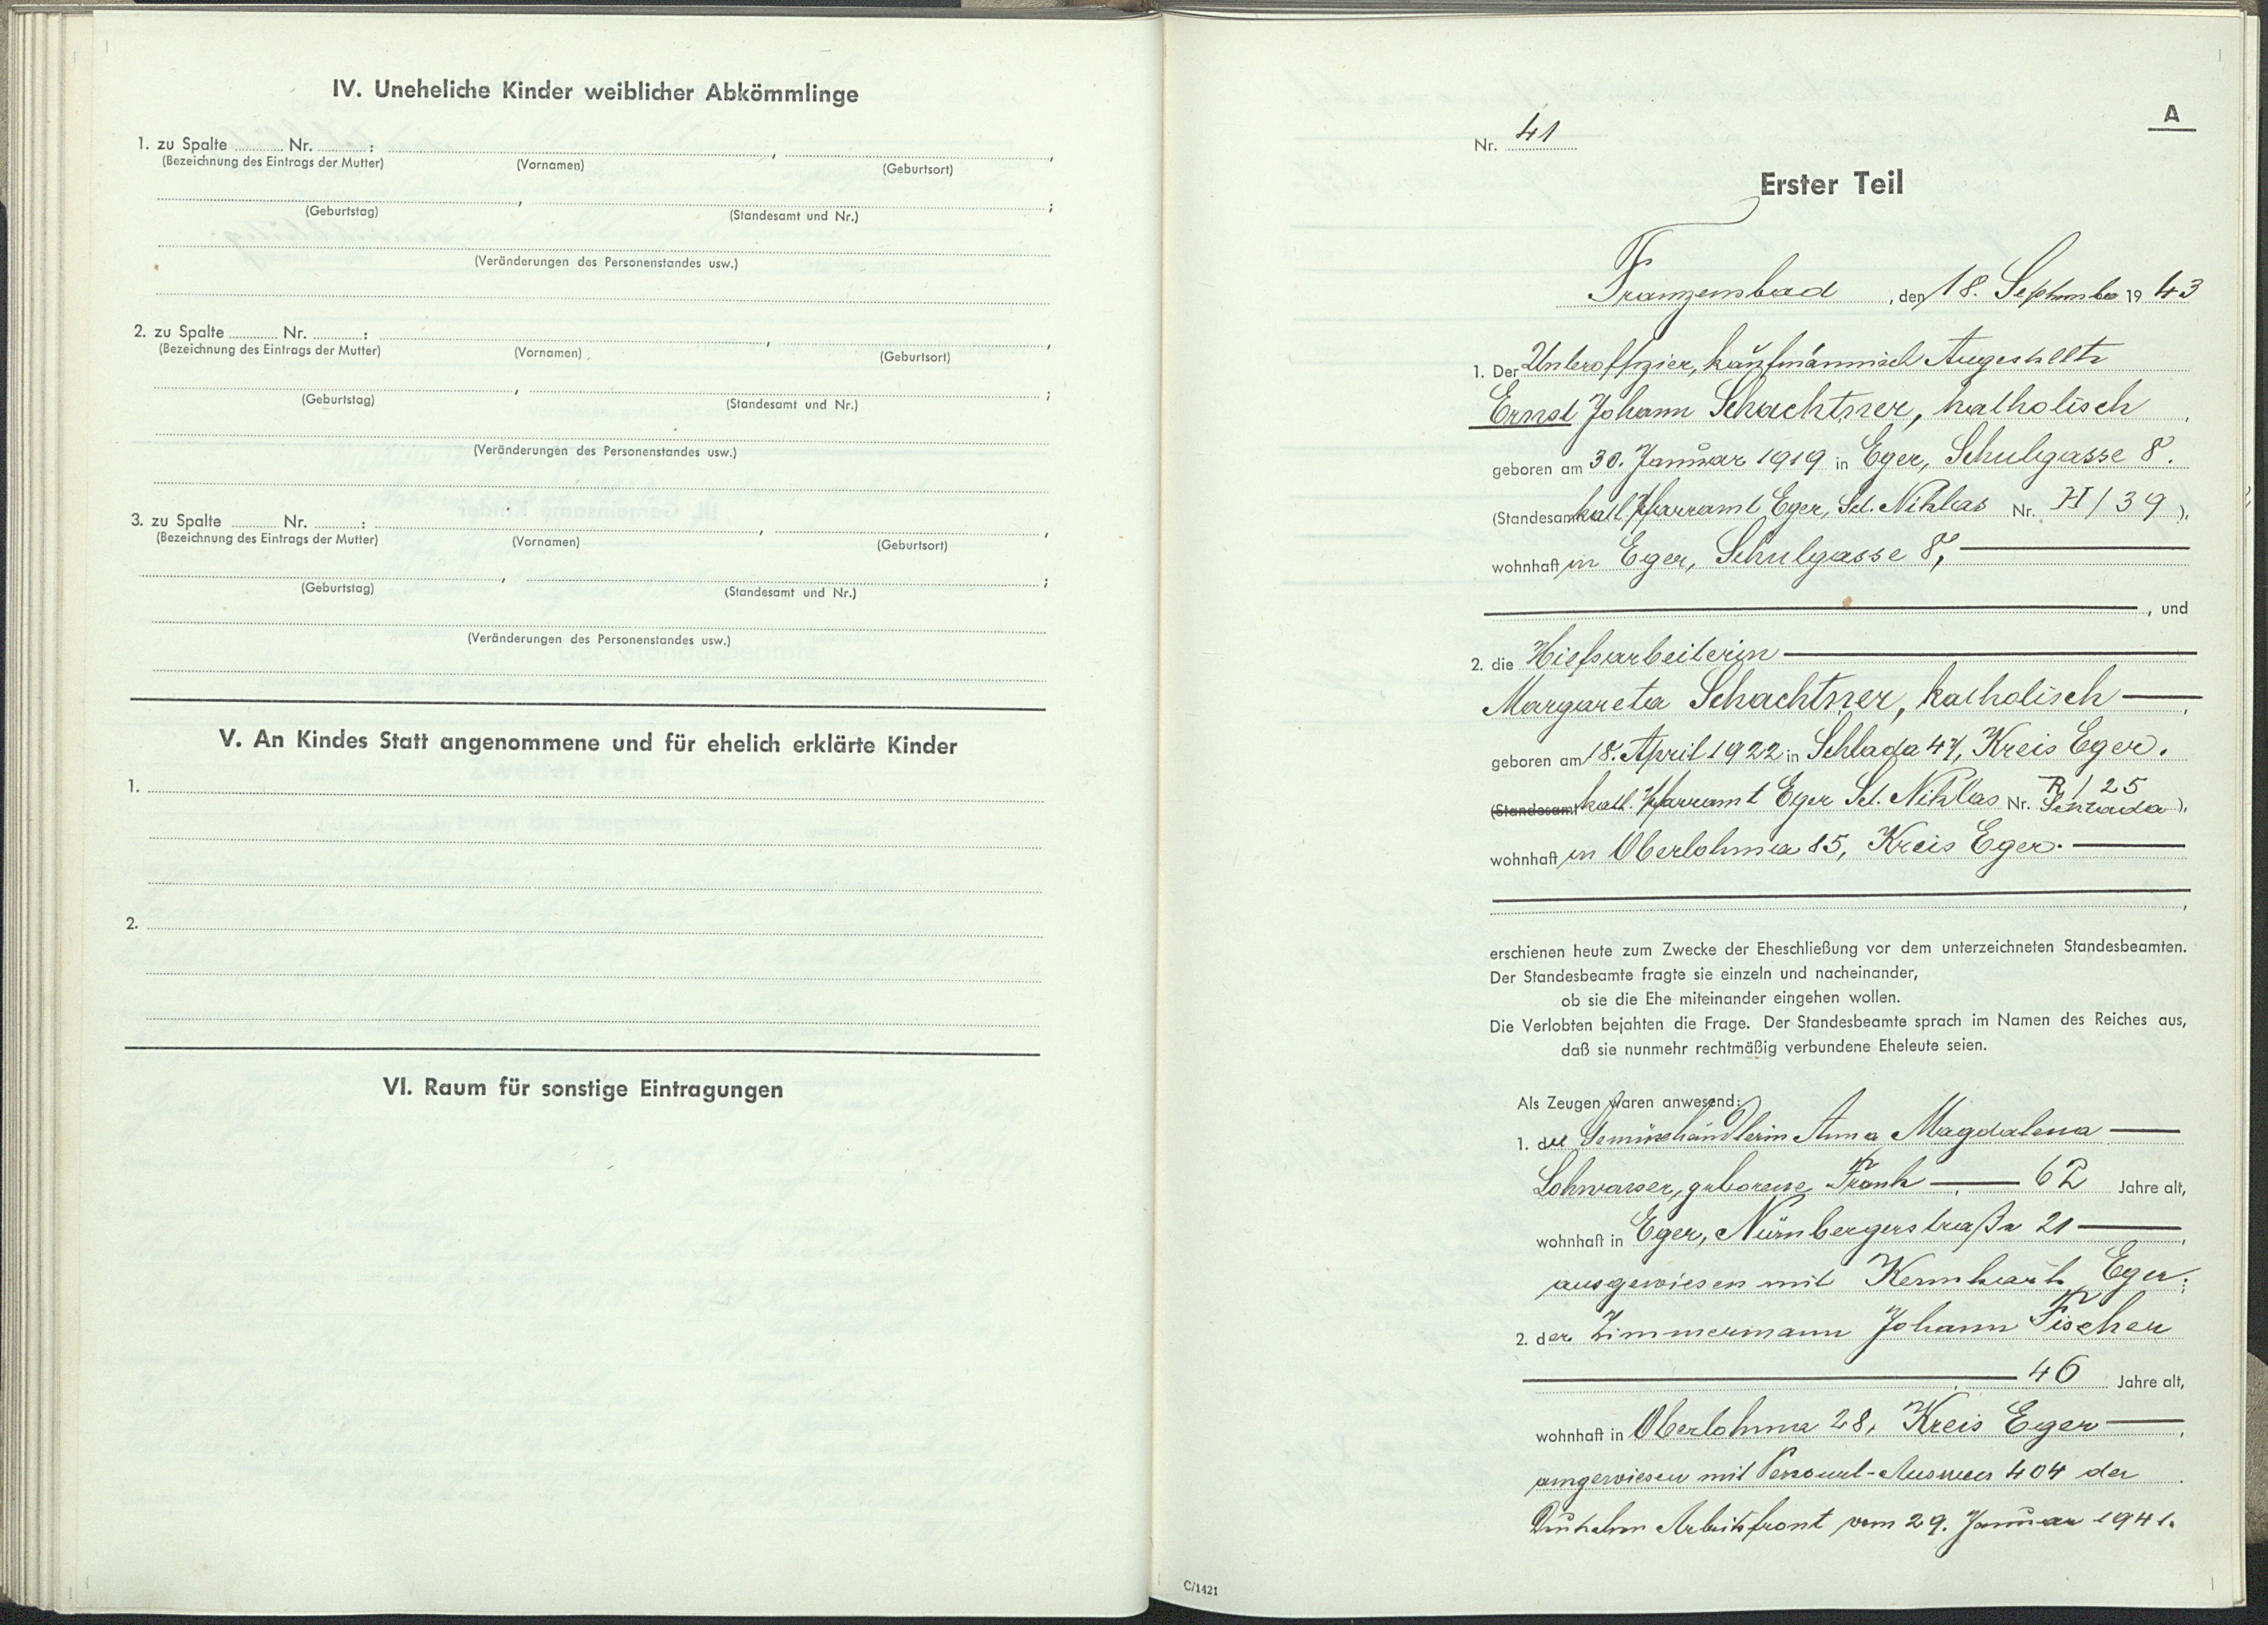 IV. Uneheliche Kinder weiblicher Abkömmlinge
1. zu Spalte Nr. : , ,
(Bezeichnung des Eintrags der Mutter) (Vornamen) (Geburtsort)
, ;
(Geburtstag) (Standesamt und Nr.)
(Veränderungen des Personenstandes usw.)
2. zu Spalte Nr. : , ,
(Bezeichnung des Eintrags der Mutter) (Vornamen) (Geburtsort)
, ;
(Geburtstag) (Standesamt und Nr.)
(Veränderungen des Personenstandes usw.)
3. zu Spalte Nr. : , ,
(Bezeichnung des Eintrags der Mutter) (Vornamen) (Geburtsort)
, ;
(Geburtstag) (Standesamt und Nr.)
(Veränderungen des Personenstandes usw.)
V. An Kindes Statt angenommene und für ehelich erklärte Kinder
1.
2.
VI. Raum für sonstige Eintragungen
A
Nr. 41
Erster Teil
Franzensbad, den 18. September 1943
1. Der Unteroffizier, kaufmännisch Angestellte
Ernst Johann Schachtner, katholisch,
geboren am 30. Januar 1919 in Eger, Schulgasse 8.
(Standesamt kath. Pfarramt Eger, Sct. Niklas Nr. H/39),
wohnhaft in Eger, Schulgasse 8,
, und
2. die Hilfsarbeiterin
Margareta Schachtner, katholisch,
geboren am 18. April 1922 in Schlada 47, Kreis Eger.
(Standesamt kath. Pfarramt Eger Sct. Niklas Nr. R/25 Schlada),
wohnhaft in Oberlohma 85, Kreis Eger.
,
erschienen heute zum Zwecke der Eheschließung vor dem unterzeichneten Standesbeamten.
Der Standesbeamte fragte sie einzeln und nacheinander,
ob sie die Ehe miteinander eingehen wollen.
Die Verlobten bejahten die Frage. Der Standesbeamte sprach im Namen des Reiches aus,
daß sie nunmehr rechtmäßig verbundene Eheleute seien.
Als Zeugen waren anwesend:
1. die Gemüsehändlerin Anna Magdalena
Lohwasser, geborene Frank, 62 Jahre alt,
wohnhaft in Eger, Nürnbergerstraße 21,
ausgewiesen mit Kennkarte Eger;
2. der Zimmermann Johann Fischer
, 46 Jahre alt,
wohnhaft in Oberlohma 28, Kreis Eger,
ausgewiesen mit Personal-Ausweis 404 der
Deutschen Arbeitsfront vom 29. Januar 1941.
C/1421